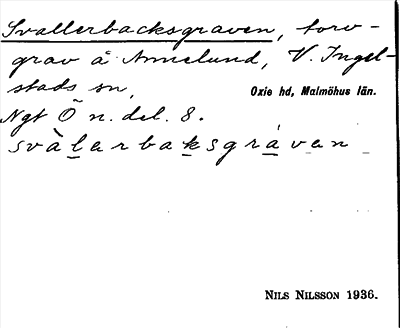 Svallerbacksgraven, torv-
grav å Annelund, V. Ingel-
stads sn,
Oxie hd, Malmöhus län.
Ngt Ö n. del. 8.
svàlarbaksgráven
NILS NILSSON 1936.